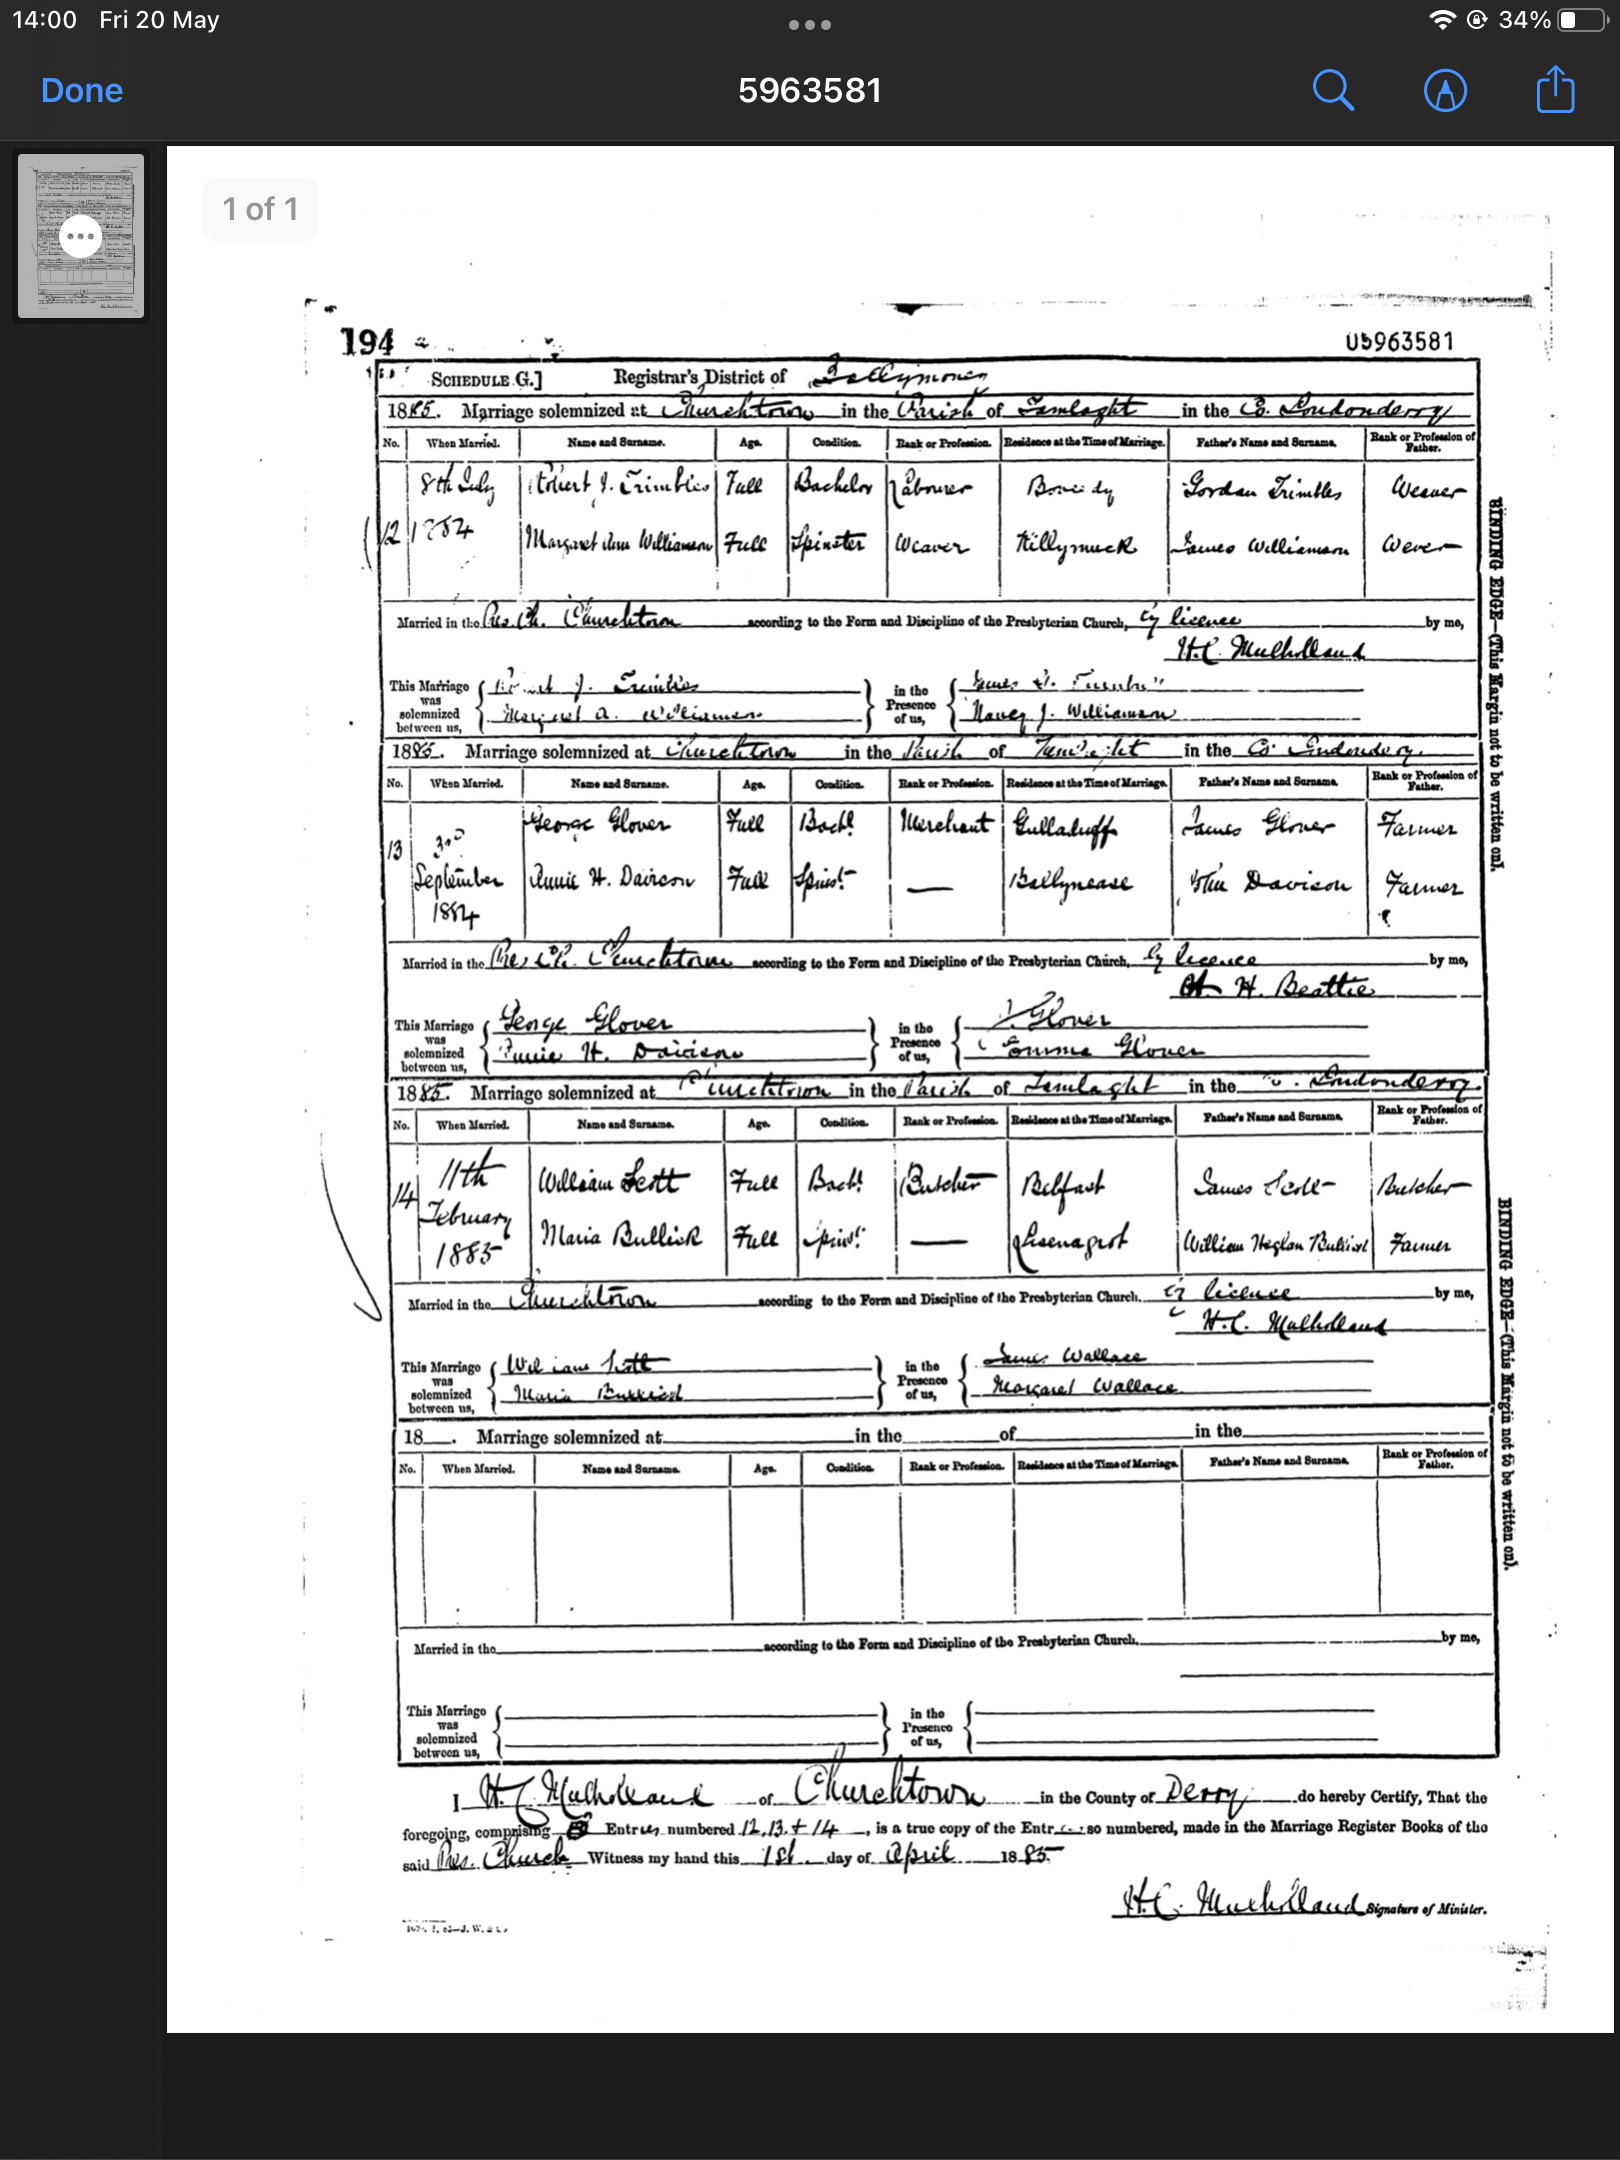 14:00 Fri 20 May 34%
Done 5963581
1 of 1
194 05963581
SCHEDULE G.] Registrar's District of Ballymoney
1885. Marriage solemnized at Churchtown in the Parish of Tamlaght in the Co. Londonderry
No. When Married. Name and Surname. Age. Condition. Rank or Profession. Residence at the Time of Marriage. Father's Name and Surname. Rank or Profession of Father.
8th July Robert J. Trimbles Full Bachelor Labourer Boveedy Gordan Trimbles Weaver
12 1884 Margaret Ann Williamson Full Spinster Weaver Killymuck James Williamson Wever
Married in the Pres. Ch. Churchtown according to the Form and Discipline of the Presbyterian Church, by licence by me,
H.C. Mulholland
This Marriage was solemnized between us, Robert J. Trimbles in the Presence of us, James
Margaret A. Williamson Nancy J. Williamson
1885. Marriage solemnized at Churchtown in the Parish of Tamlaght in the Co. Londonderry.
No. When Married. Name and Surname. Age. Condition. Rank or Profession. Residence at the Time of Marriage. Father's Name and Surname. Rank or Profession of Father.
George Glover Full Bachl. Merchant Gulladuff James Glover Farmer
13 September Annie H. Davison Full Spinst. — Ballynease John Davison Farmer
1884
Married in the Pres. Ch. Churchtown according to the Form and Discipline of the Presbyterian Church, by licence by me,
H. Beattie
This Marriage was solemnized between us, George Glover in the Presence of us, J. Glover
Annie H. Davison Glover
1885. Marriage solemnized at Churchtown in the Parish of Tamlaght in the Londonderry.
No. When Married. Name and Surname. Age. Condition. Rank or Profession. Residence at the Time of Marriage. Father's Name and Surname. Rank or Profession of Father.
11th William Scott Full Bachl. Butcher Belfast James Scott Butcher
14 February Maria Bullick Full Spinst. — Lisnagrot William Bullick Farmer
1885
Married in the Churchtown according to the Form and Discipline of the Presbyterian Church, by licence by me,
H.C. Mulholland
This Marriage was solemnized between us, William Scott in the Presence of us, James Wallace
Maria Bullick Margaret Wallace
18 . Marriage solemnized at in the of in the
No. When Married. Name and Surname. Age. Condition. Rank or Profession. Residence at the Time of Marriage. Father's Name and Surname. Rank or Profession of Father.
Married in the according to the Form and Discipline of the Presbyterian Church, by me,
This Marriage was solemnized between us, in the Presence of us,
I H.C. Mulholland of Churchtown in the County of Derry do hereby Certify, That the
foregoing, comprising Entries numbered 12, 13 + 14, is a true copy of the Entr so numbered, made in the Marriage Register Books of the
said Pres. Church Witness my hand this 1st day of April 1885
H.C. Mulholland Signature of Minister.
BINDING EDGE—(This Margin not to be written on).
BINDING EDGE—(This Margin not to be written on).